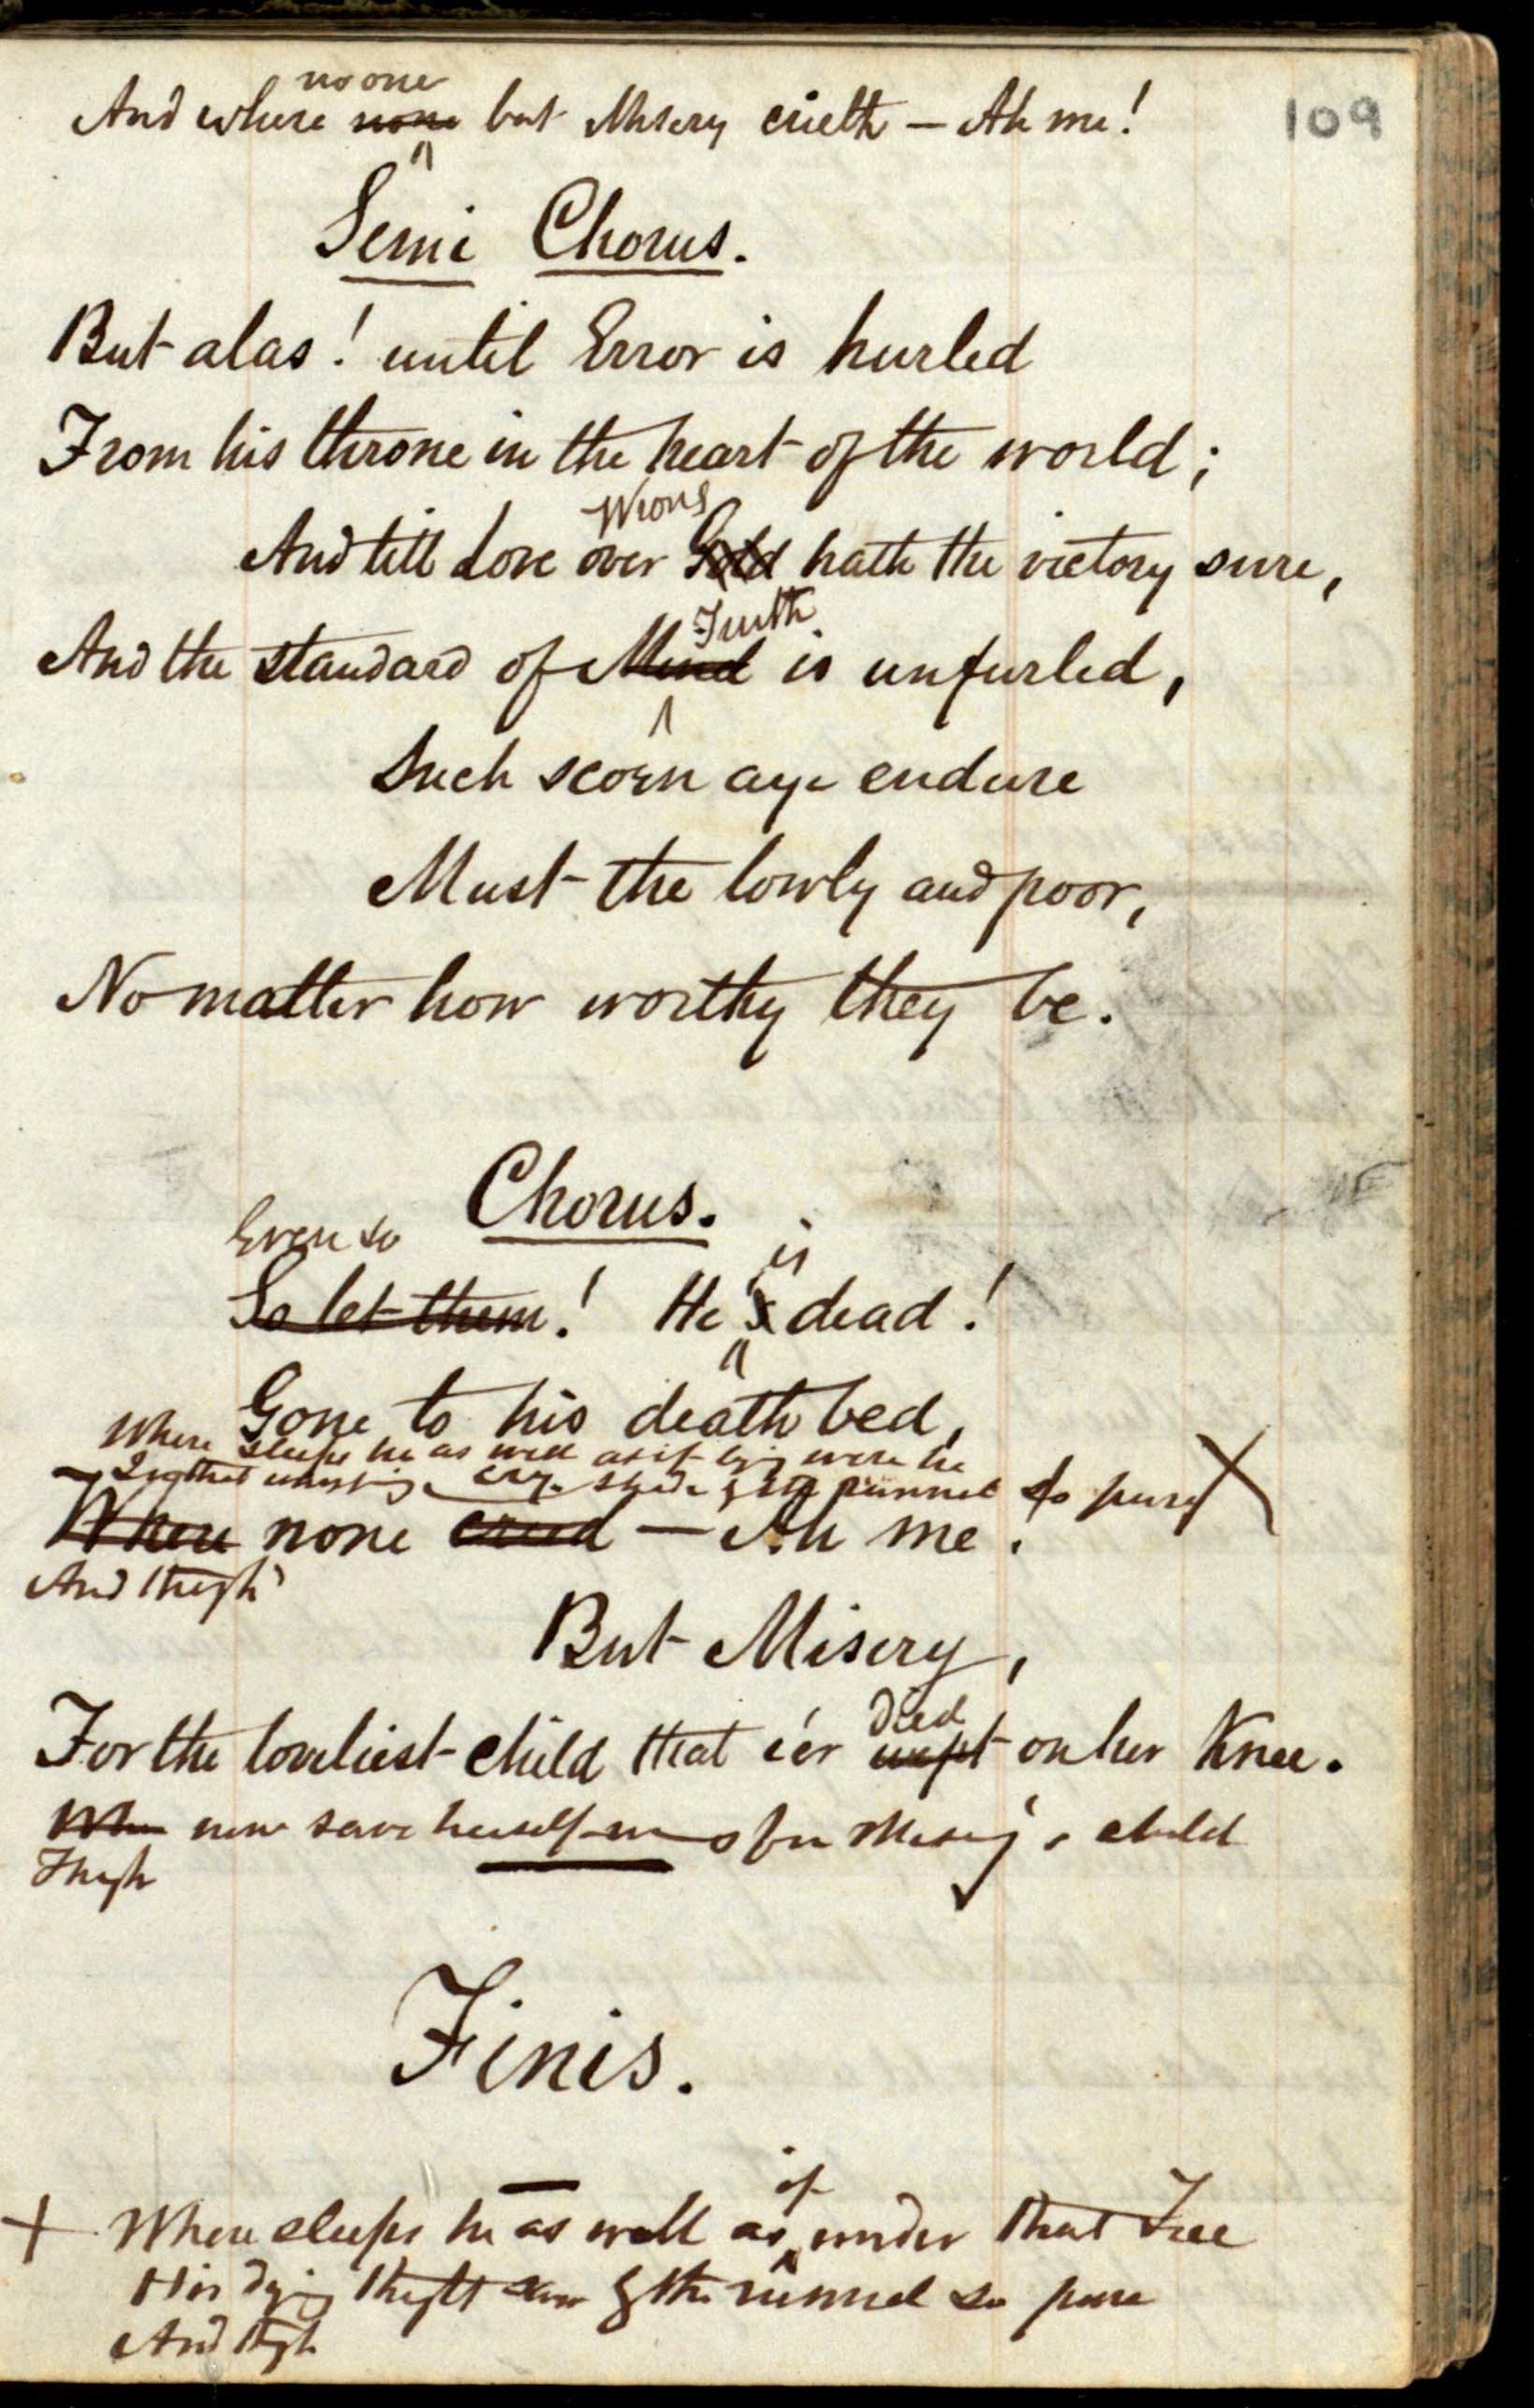 109
no one
And where none but Misery crieth — Ah me!
Semi Chorus.
But alas! until Error is hurled
From his throne in the heart of the world;
Wrong
And till Love over Gold hath the victory sure,
Truth
And the standard of Mind is unfurled,
Such scorn aye endure
Must the lowly and poor,
No matter how worthy they be.
Chorus.
Even so is
So let them! He's dead!
Gone to his death bed,
Where sleeps he as well as if lying were he
that the runnel so pure
Where none cried — Ah me!
And though
But Misery,
Died
For the loveliest child that e'er wept on her Knee.
save herself for Misery's child
Though
Finis.
if
+ Where sleeps he as well as under that Tree
His dying thought saw by the runnel so pure
And though